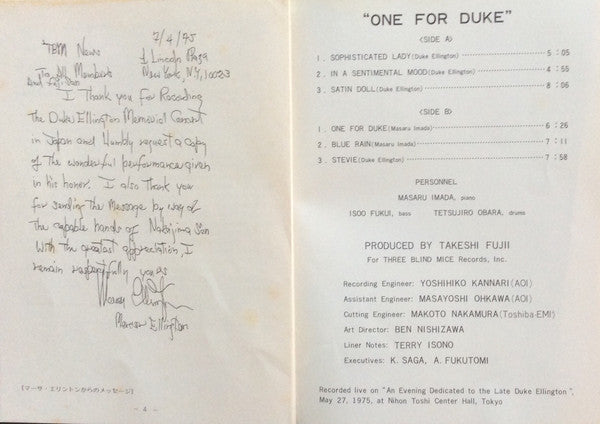 7/4/75
"TBM News
1 Lincoln Plaza
To All Members
New York, N.Y., 10023
And Fuji San
I Thank you for Recording
the Duke Ellington Memorial Concert
in Japan and Humbly request a copy
of The wonderful performance given
in his honor. I also Thank you
for sending the Message by way of
the capable hands of Nakajima San
With the greatest appreciation, I
remain respectfully yours
Mercer Ellington
[マーサ・エリントンからのメッセージ]
– 4 –
"ONE FOR DUKE"
<SIDE A>
1. SOPHISTICATED LADY(Duke Ellington) 5:05
2. IN A SENTIMENTAL MOOD(Duke Ellington) 4:55
3. SATIN DOLL(Duke Ellington) 8:06
<SIDE B>
1. ONE FOR DUKE(Masaru Imada) 6:26
2. BLUE RAIN(Masaru Imada) 7:11
3. STEVIE(Duke Ellington) 7:58
PERSONNEL
MASARU IMADA, piano
ISOO FUKUI, bass TETSUJIRO OBARA, drums
PRODUCED BY TAKESHI FUJII
For THREE BLIND MICE Records, Inc.
Recording Engineer: YOSHIHIKO KANNARI(AOI)
Assistant Engineer: MASAYOSHI OHKAWA(AOI)
Cutting Engineer: MAKOTO NAKAMURA(Toshiba-EMI)
Art Director: BEN NISHIZAWA
Liner Notes: TERRY ISONO
Executives: K. SAGA, A. FUKUTOMI
Recorded live on "An Evening Dedicated to the Late Duke Ellington",
May 27, 1975, at Nihon Toshi Center Hall, Tokyo